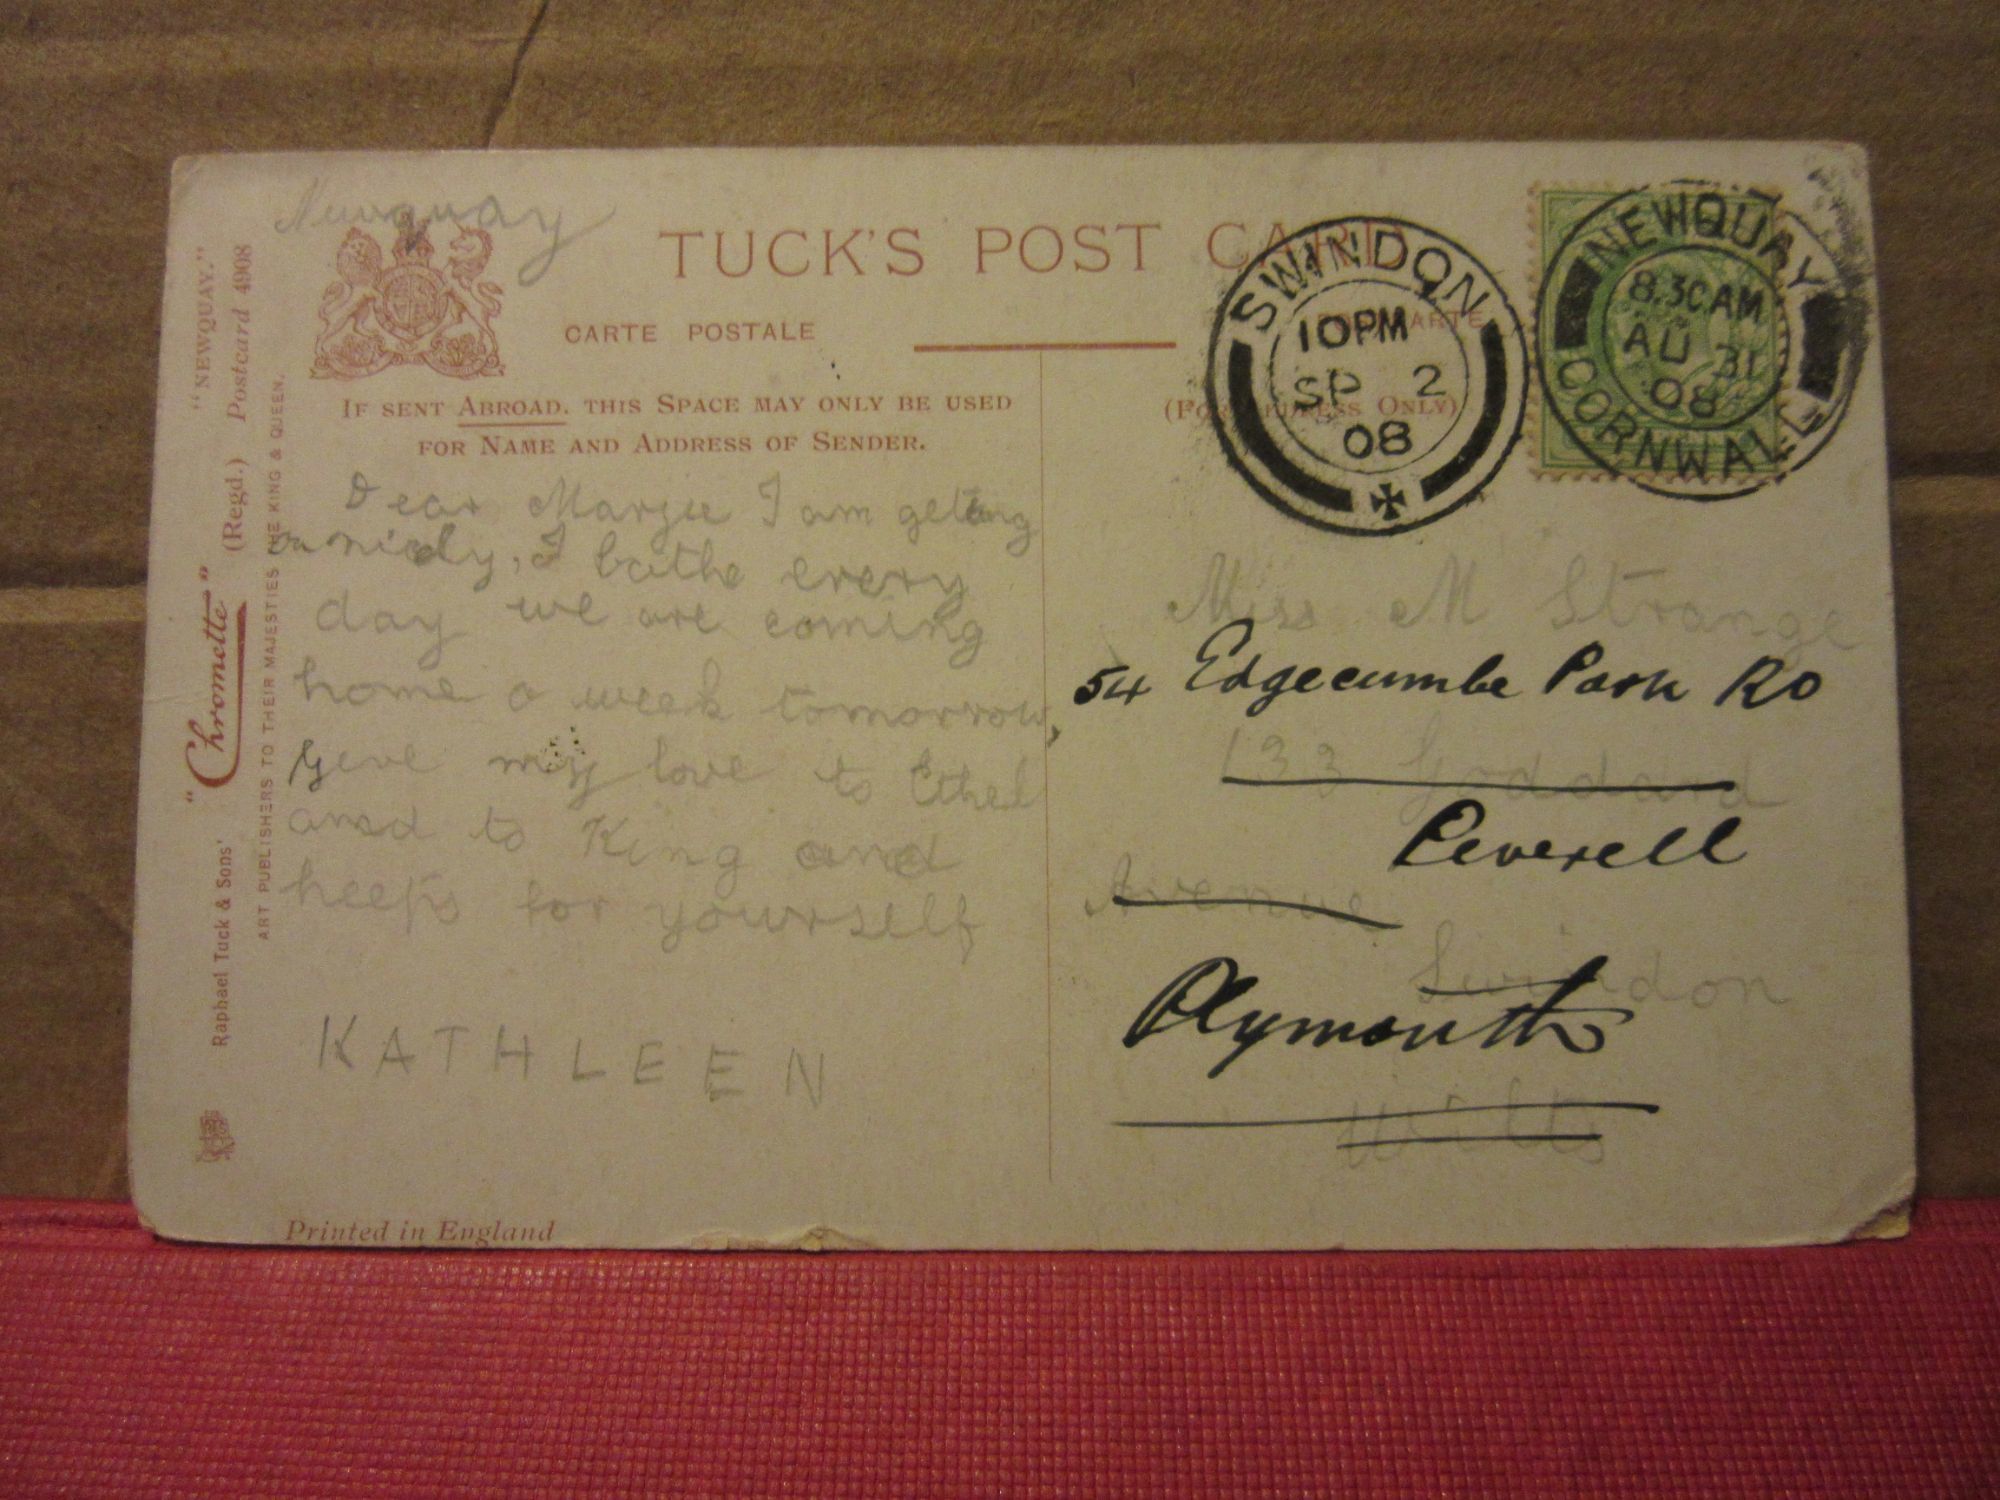 Newquay
TUCK'S POST CARD
CARTE POSTALE
IF SENT ABROAD, THIS SPACE MAY ONLY BE USED
FOR NAME AND ADDRESS OF SENDER.
(FOR ADDRESS ONLY)
SWINDON
10PM
SP 2
08
NEWQUAY
8.30AM
AU 31
08
CORNWALL
Dear Marjie I am getting
on nicely, I bathe every
day we are coming
home a week tomorrow,
give my love to Ethel
and to King and
heeps for yourself
KATHLEEN
Miss M Strange
54 Edgecumbe Park Rd
133 Goddard
Peverell
Avenue
Swindon
Plymouth
Wilts
"NEWQUAY."
Raphael Tuck & Sons' "Chromette" (Regd.) Postcard 4908
ART PUBLISHERS TO THEIR MAJESTIES THE KING & QUEEN.
Printed in England